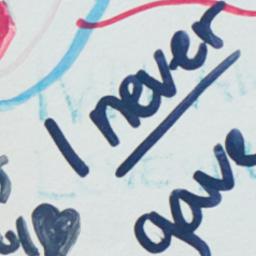 I never
gave